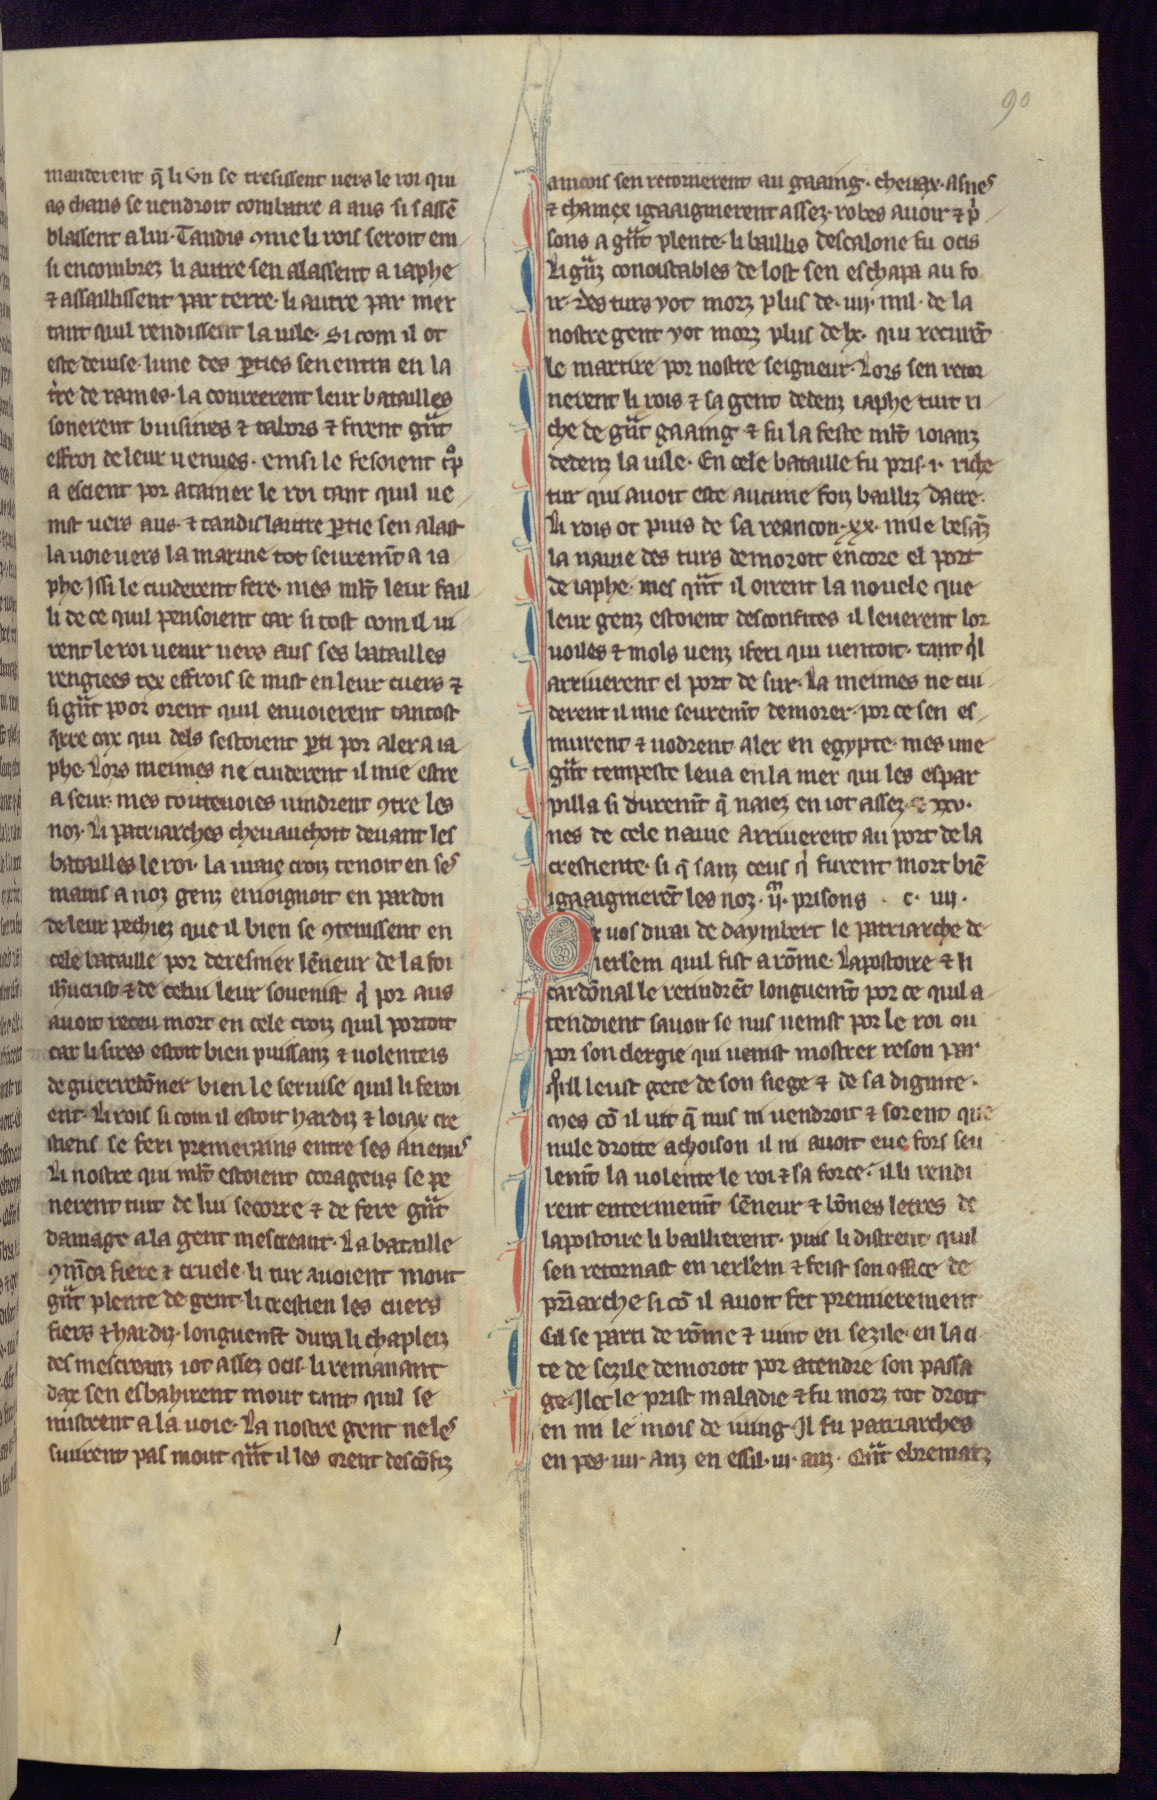 90
manderent q̃ li vn se tresissent uers le roi qui
as chans se uendroit combatre a aus si sassẽ
blassent a lui. Tandis 9me li rois seroit ein
si encombrez li autre sen alassent a iaphe
⁊ assaillissent par terre. li autre par mer
tant quil rendissent la uile. Si com il ot
este deuise. lune des ꝑties sen entra en la
t̃re de rames. la conreerent leur batailles
sonerent buisines ⁊ tabors ⁊ firent gñt
effroi de leur uenues. einsi le fesoient t̊p
a escient por atainer le roi tant quil ue
nist uers aus. ⁊ tandis lautre ꝑtie sen alast
la uoie uers la marine tot seurem̃t a ia
phe. Issi le cuiderent fere. mes ml̃t leur fail
li de ce quil pensoient car si tost com il ui
rent le roi uenir uers aus ses batailles
rengiees tex effrois se mist en leur cuers ⁊
si gñt poor orent quil enuoierent tantost
q̃rre cax qui dels sestoient ꝑti por aler a ia
phe. Lors meimes ne cuiderent il mie estre
a seur. mes toutenoies uindrent 9tre les
noz. Li patriarches cheuauchoit deuant les
batailles le roi. la uraie croiz tenoit en ses
mains a noz genz enioignoit en pardon
de leur pechiez que il bien se 9tenissent en
cele bataille por deresnier lẽneur de la foi
ih̃ucrist ⁊ de celui leur souenist q̃ por aus
auoit receu mort en cele croiz quil portoit
car li sires estoit bien puissanz ⁊ uolenteis
de guerredõner bien le seruise quil li feroi
ent. Li rois si com il estoit hardiz ⁊ loiax cre
stiens se feri premerains entre ses anemis
Li nostre qui ml̃t estoient corageus se pe
nerent tuit de lui secorre ⁊ de fere gñt
damage a la gent mescreant. La bataille
9mẽca fiere ⁊ cruele. li tur auoient mout
gñt plente de gent. li crestien les cuers
fiers ⁊ hardiz. longuem̃t dura li chapleiz
des mescreanz iot assez ocis. li remanant
dax sen esbahirent mout tant quil se
mistrent a la uoie. La nostre gent ne les
suiurent pas mout qñt il les orent descõfiz
aincois sen retornerent au gaaing. cheuax. asnes
⁊ chamex igaaignierent assez. robes auoir ⁊ p̃
sons a gñt plente. li baillis descalone fu ocis
Li gñz conoistables de lost sen eschapa au fo
ir. des turs yot morz plus de. iiij. mil. de la
nostre gent yot morz plus de lx. qui reciurẽt
le martire por nostre seigneur. Lors sen retor
nerent li rois ⁊ sa gent dedenz iaphe tuit ri
che de gñt gaaing ⁊ fu la feste ml̃t ioianz
dedenz la uile. En cele bataille fu pris. i. riche
tur qui auoit este aucune foiz bailliz dacre.
Li rois ot puis de sa reancon. xx. mile besãz
la nauie des turs demoroit encore el port
de iaphe. mes qñt il oirent la nouele que
leur genz estoient desconfites il leuerent lor
uoiles ⁊ mols uenz iferi qui uentoit. tant q̃l
arriuerent el port de sur. La meimes ne cui
derent il mie seurem̃t demorer. por ce sen es
murent ⁊ uodrent aler en egypte. mes une
gñt tempeste leua en la mer qui les espar
pilla si durem̃t q̃ naiez en iot assez. ⁊ xxv.
nes de cele nauie arriuerent au port de la
crestiente. si q̃ sanz ceus q̃ furent mort biẽ
igaaignierẽt les noz. ij.m prisons. c. iiij.
Or uos dirai de daymbert le patriarche de
ierl̃em quil fist a rõme. Lapostoire ⁊ li
cardõnal le retindrẽt longuem̃t por ce quil a
tendoient sauoir se nus uenist por le roi ou
por son clergie qui uenist mostrer reson par
q̊i il leust gete de son siege ⁊ de sa dignite.
Mes cõ il uit q̃ nus ni uendroit ⁊ sorent que
nule droite achoison il ni auoit eue fors seu
lem̃t la uolente le roi ⁊ sa force. il li rendi
rent enterinem̃t sẽneur ⁊ bõnes letres de
lapostoire li baillierent. puis li distrent quil
sen retornast en ierl̃em ⁊ feist son office de
pr̃iarche si cõ il auoit fet premierement
Cil se parti de rõme ⁊ uint en sezile. en la ci
te de sezile demoroit por atendre son passa
ge. Ilec le prist maladie ⁊ fu morz tot droit
en mi le mois de iuing. Il fu patriarches
en pes. iiii. anz en essil. iii. anz. Qñt ebremarz